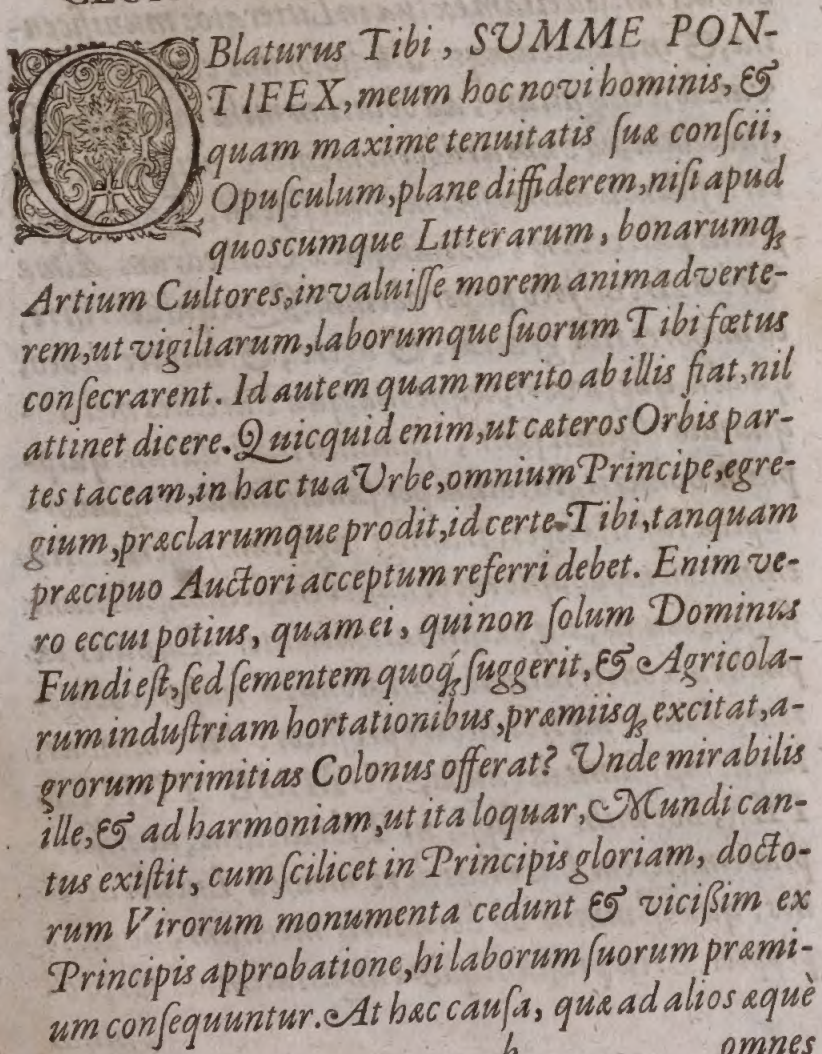 OBlaturus Tibi, SUMME PON-
TIFEX, meum hoc novi hominis, &
quam maxime tenuitatis ſuæ conſcii,
Opuſculum, plane diffiderem, niſi apud
quoscumque Litterarum, bonarumq;
Artium Cultores, invaluiſſe morem animadverte-
rem, ut vigiliarum, laborumque ſuorum Tibi fœtus
conſecrarent. Id autem quam merito ab illis fiat, nil
attinet dicere. Quicquid enim, ut cæteros Orbis par-
tes taceam, in hac tua Urbe, omnium Principe, egre-
gium, præclarumque prodit, id certe Tibi, tanquam
præcipuo Auctori acceptum referri debet. Enim ve-
ro eccui potius, quam ei, qui non ſolum Dominus
Fundi eſt, ſed ſementem quoq; ſuggerit, & Agricola-
rum induſtriam hortationibus, præmiisq; excitat, a-
grorum primitias Colonus offerat? Unde mirabilis
ille, & ad harmoniam, ut ita loquar, Mundi can-
tus exiſtit, cum ſcilicet in Principis gloriam, docto-
rum Virorum monumenta cedunt & viciſsim ex
Principis approbatione, hi laborum ſuorum præmi-
um conſequuntur. At hæc cauſa, quæ ad alios æquè
b omnes